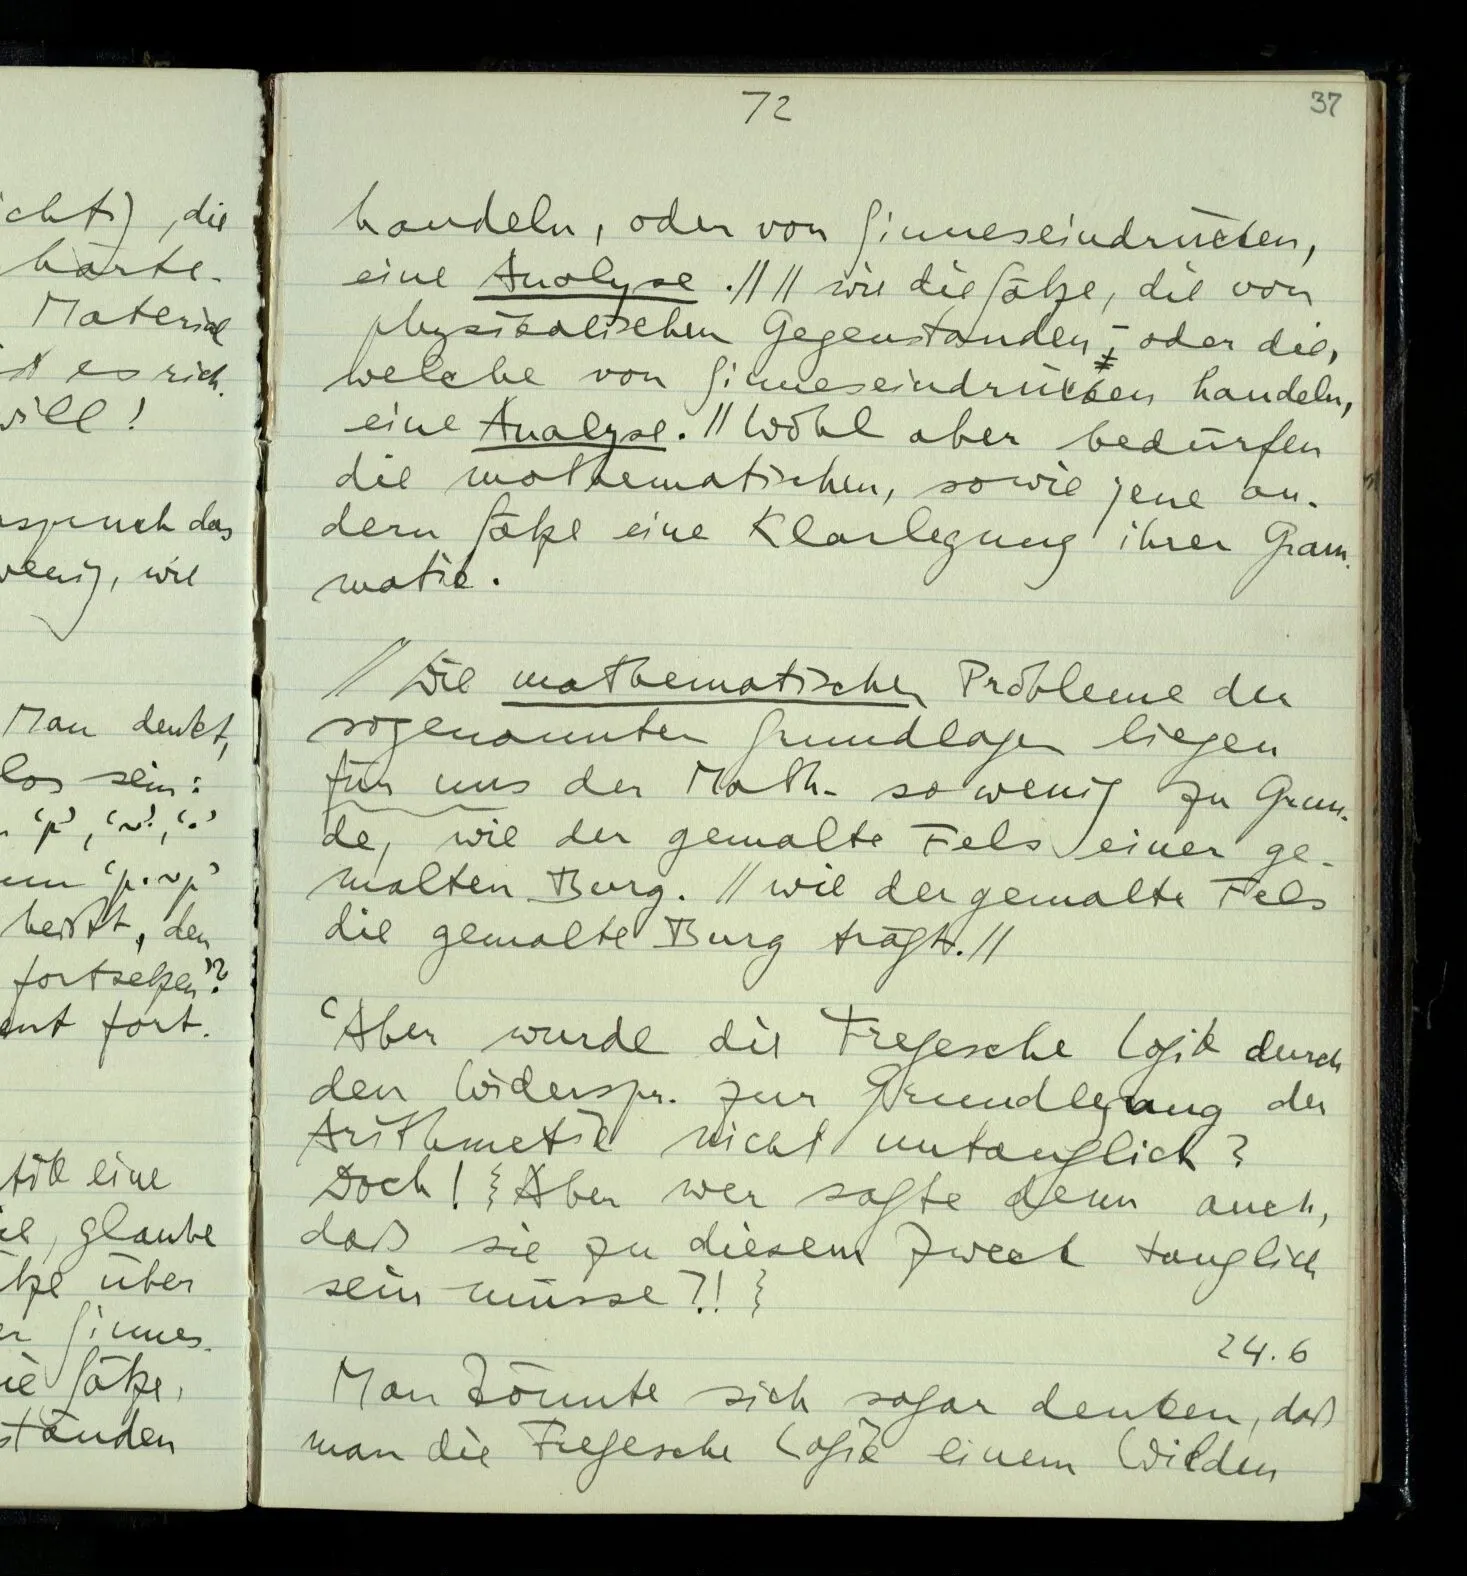 cht), die
härte.
Material
ist es rich
will!
nspruch das
wenig, wie
Man denkt,
los sein:
'p', '~', '.'
'p.~p'
heißt, den
fortsetzen"?
fort.
tik eine
glaube
tze über
er Sinnes-
ie Sätze,
ständen
72
37
handeln, oder von Sinneseindrücken,
eine Analyse.// // wie die Sätze, die von
physikalischen Gegenständen, – oder die,
welche von Sinneseindrücken handeln,
eine Analyse.// Wohl aber bedürfen
die mathematischen, sowie jene an-
dern Sätze eine Klarlegung ihrer Gram-
matik.
// Die mathematischen Probleme der
sogenannten Grundlagen liegen
für uns der Math. so wenig zu Grun-
de, wie der gemalte Fels einer ge-
malten Burg. // wie der gemalte Fels
die gemalte Burg trägt.//
'Aber wurde die Fregesche Logik durch
den Widerspr. zur Grundlegung der
Arithmetik nicht untauglich?
Doch! ⌇Aber wer sagte denn auch,
daß sie zu diesem Zweck tauglich
sein müsse?! ⌇
24.6
Man könnte sich sogar denken, daß
man die Fregesche Logik einem Wilden